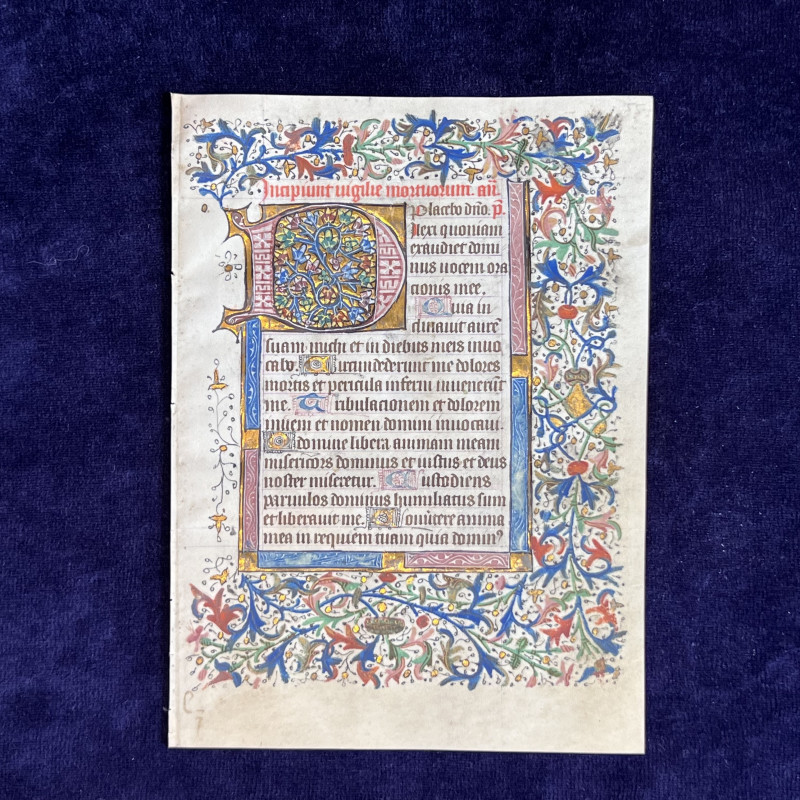 Incipiunt vigilie mortuorum. añ
Placebo dño. p̄.
Dilexi quoniam
exaudiet domi
nus uocem ora
cionis mee.
Quia in
clinauit aurē
suam michi et in diebus meis inuo
cabo. Circumdederunt me dolores
mortis et pericula inferni inuenerūt
me. Tribulacionem et dolorem
inueni et nomen domini inuocaui.
O domine libera animam meam
misericors dominus et iustus et deus
noster miseretur. Custodiens
paruulos dominus humiliatus sum
et liberauit me. Conuertere anima
mea in requiem tuam quia domin⁹